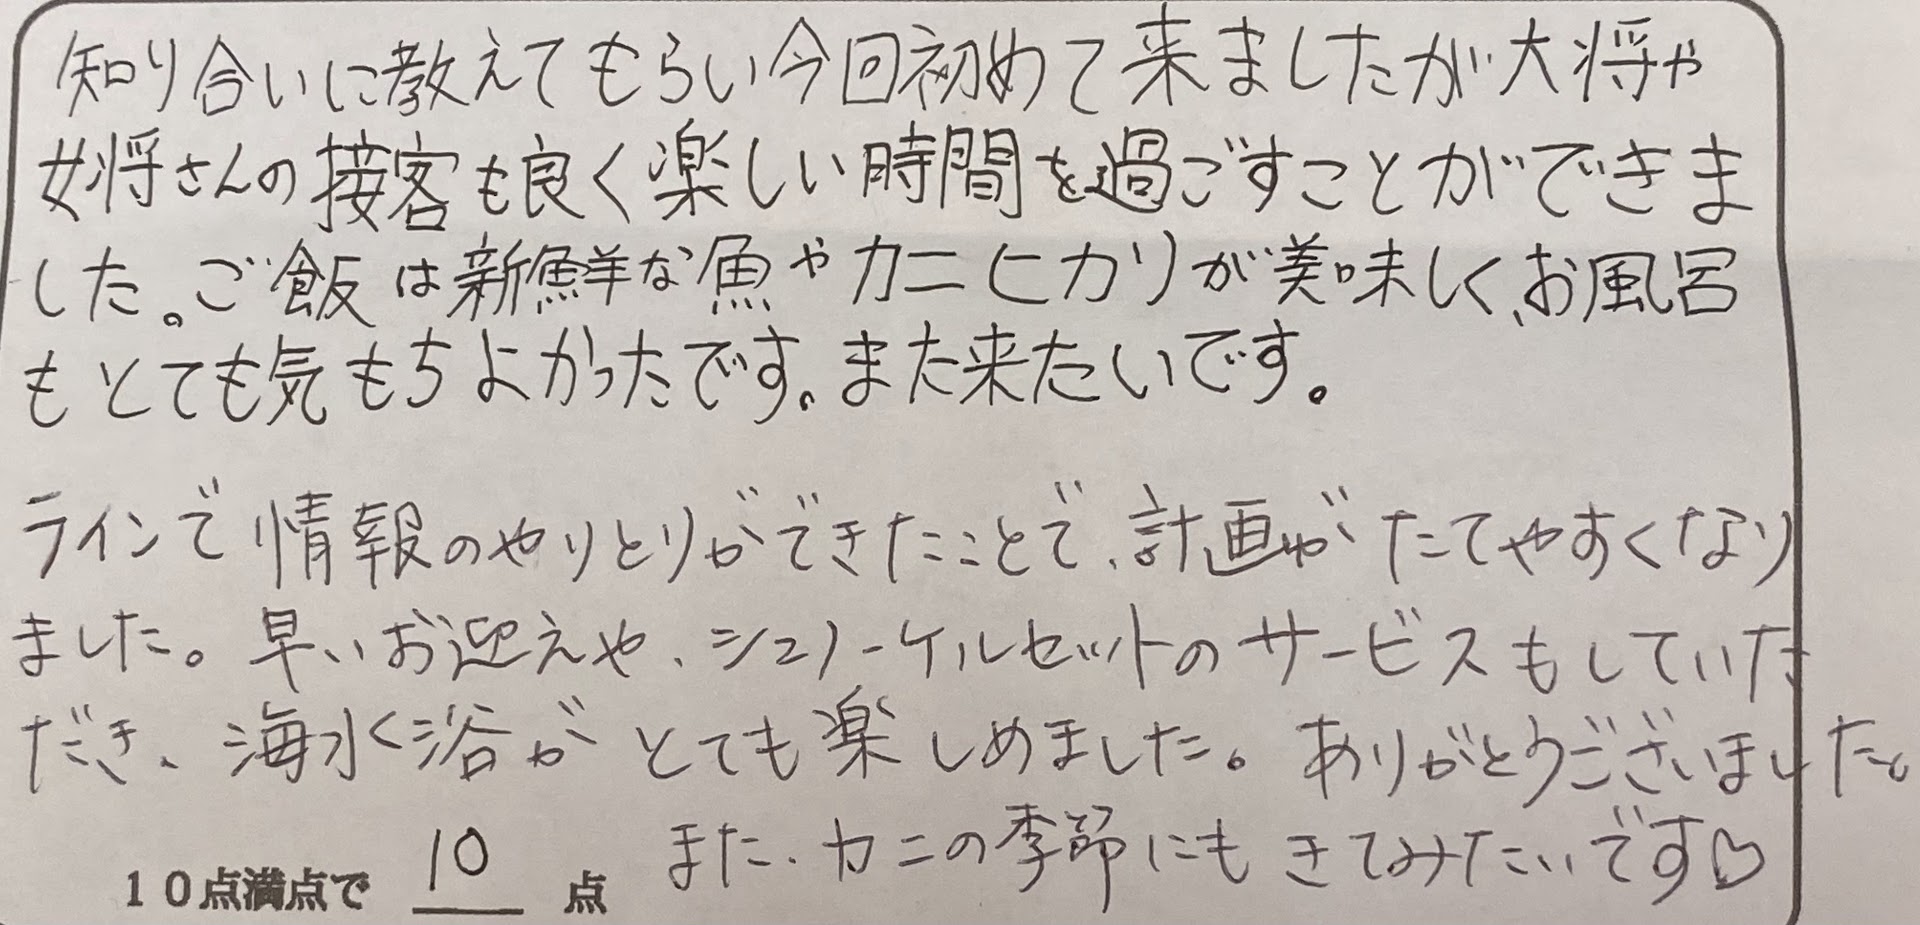 知り合いに教えてもらい今回初めて来ましたが大将や
女将さんの接客も良く楽しい時間を過ごすことができま
した。ご飯は新鮮な魚やカニヒカリが美味しく、お風呂
もとても気もちよかったです。また来たいです。
ラインで情報のやりとりができたことで、計画がたてやすくなり
ました。早いお迎えや、シュノーケルセットのサービスもしていた
だき、海水く浴がとても楽しめました。ありがとうございました。
また、カニの季節にもきてみたいです♡
10点満点で 10 点